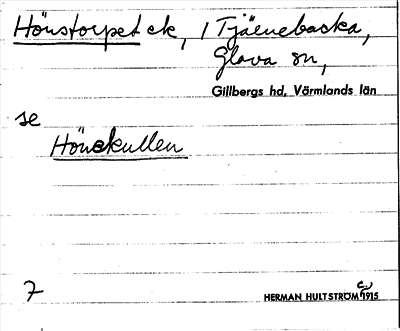 Hönstorpet ek, / Tjäenebacka,
Glava sn,
Gillbergs hd, Värmlands län
se
Hönekullen
7
HERMAN HULTSTRÖM 1915